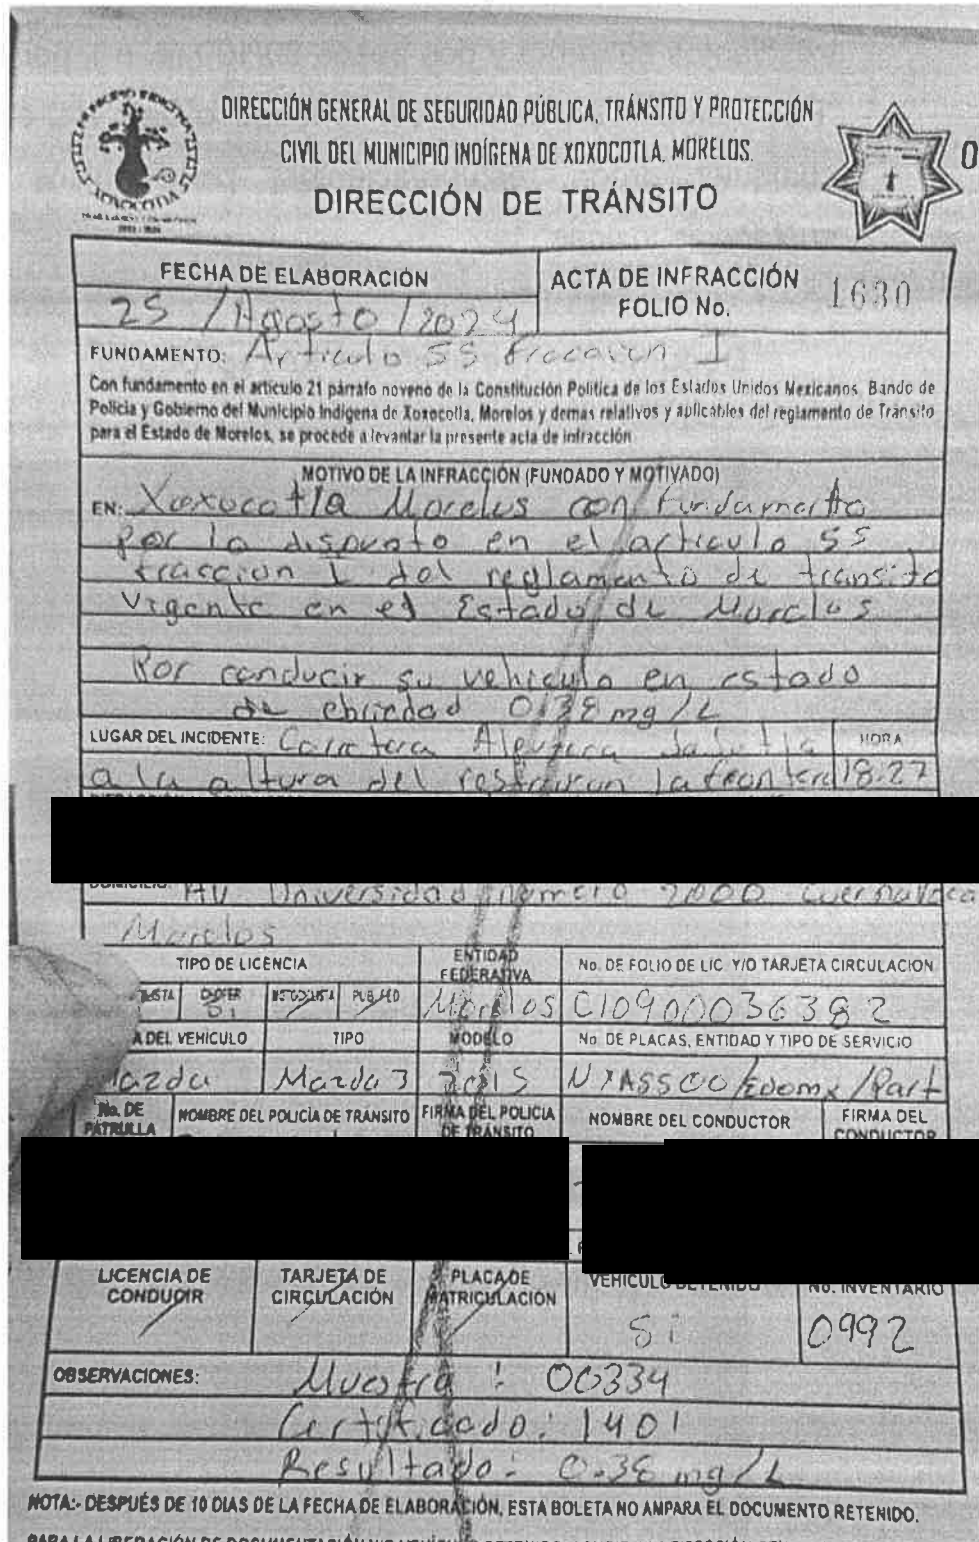 DIRECCIÓN GENERAL DE SEGURIDAD PÚBLICA, TRÁNSITO Y PROTECCIÓN
CIVIL DEL MUNICIPIO INDÍGENA DE XOXOCOTLA, MORELOS.
DIRECCIÓN DE TRÁNSITO
0
FECHA DE ELABORACIÓN
25 / Agosto / 2024
ACTA DE INFRACCIÓN
FOLIO No.
1630
FUNDAMENTO: Articulo 55 fraccion I
Con fundamento en el artículo 21 párrafo noveno de la Constitución Política de los Estados Unidos Mexicanos, Bando de
Policía y Gobierno del Municipio Indígena de Xoxocotla, Morelos y demas relativos y aplicables del reglamento de Tránsito
para el Estado de Morelos, se procede a levantar la presente acta de infracción
MOTIVO DE LA INFRACCIÓN (FUNDADO Y MOTIVADO)
EN: Xoxocotla Morelos con fundamento
por lo dispuesto en el articulo 55
fraccion I del reglamento de transito
Vigente en el Estado de Morelos
Por conducir su vehiculo en estado
de ebriedad 0.38 mg/L
LUGAR DEL INCIDENTE: Carretera Alpuyeca Jojutla
HORA
a la altura del la frontera 18:27
DOMICILIO: AV Universidad numero 2000 Cuernavaca
Morelos
TIPO DE LICENCIA
ENTIDAD
FEDERATIVA
No. DE FOLIO DE LIC. Y/O TARJETA CIRCULACION
CHOFER
MOTOCICLISTA
Si
Morelos
C10900036382
VEHÍCULO
TIPO
MODELO
No. DE PLACAS, ENTIDAD Y TIPO DE SERVICIO
Mazda
Mazda 3
2015
NXA5500/Edomx/Part
No. DE
PATRULLA
NOMBRE DEL POLICÍA DE TRÁNSITO
FIRMA DEL POLICIA
DE TRÁNSITO
NOMBRE DEL CONDUCTOR
FIRMA DEL
CONDUCTOR
LICENCIA DE
CONDUCIR
TARJETA DE
CIRCULACIÓN
PLACA DE
MATRICULACIÓN
VEHÍCULO DETENIDO
Si
No. INVENTARIO
0992
OBSERVACIONES: Muestra : 00334
Certificado: 1401
Resultado: 0.38 mg/L
NOTA:- DESPUÉS DE 10 DIAS DE LA FECHA DE ELABORACIÓN, ESTA BOLETA NO AMPARA EL DOCUMENTO RETENIDO.